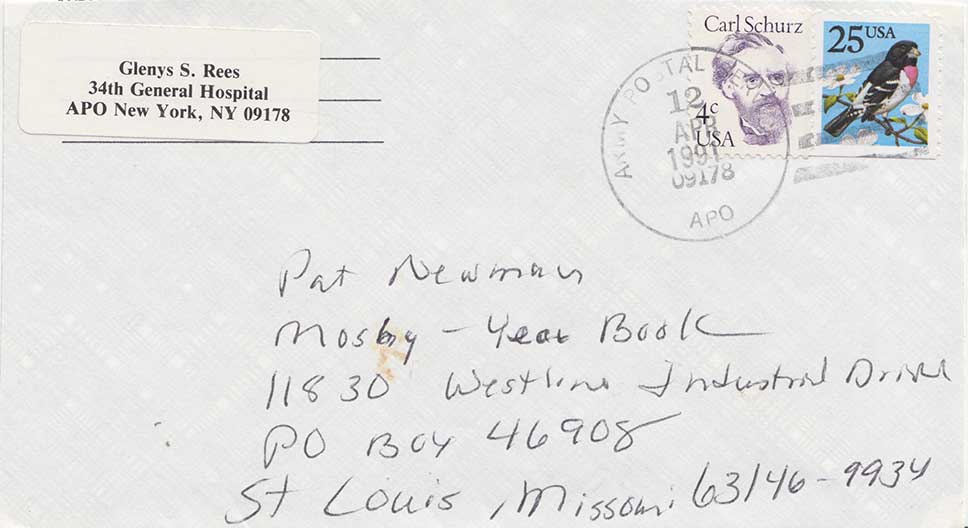 Glenys S. Rees
34th General Hospital
APO New York, NY 09178
Carl Schurz
4c
USA
25 USA
ARMY POSTAL
12
APR
1991
09178
APO
Pat Newman
Mosby - Year Book
11830 Westline Industrial Drive
PO Box 46908
St Louis, Missouri 63146-9934